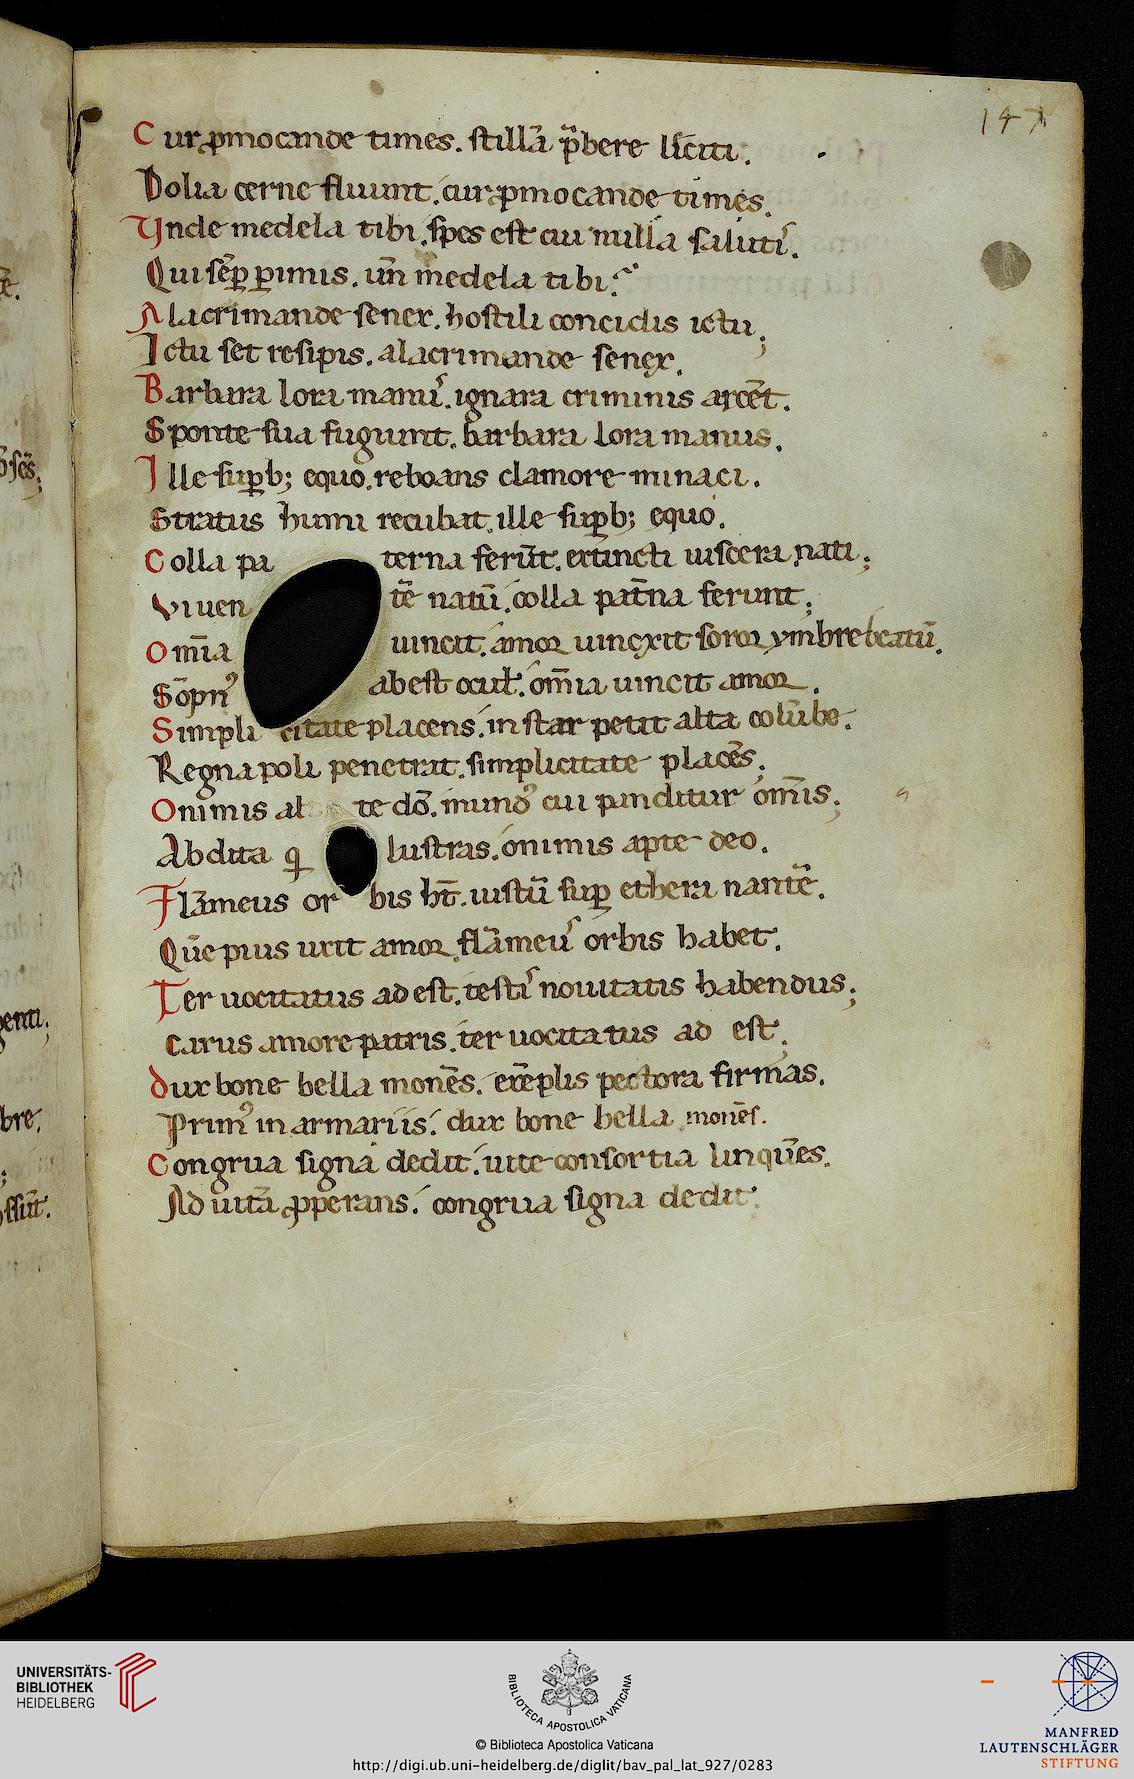 147
Cur ꝓmocande times. stillā p̄bere liciti.
Dolia cerne fluunt. cur ꝓmocande times.
Vnde medela tibi. spes est cui nulla saluti᷒.
Qui sēꝑ ꝑimis. uñ medela tibi.
Alacrimande senex. hostili concidis ictu;
Ictu set resipis. alacrimande senex.
Barbara lora manu᷒. ignara criminis arcēt.
Sponte sua fugiunt. barbara lora manus.
Ille suꝑb; equo. reboans clamore minaci.
Stratus humi recubat. ille suꝑb; equo.
Colla pa terna ferūt. extincti uiscera nati;
Viuen tē natū. colla pat̄na ferunt;
Om̄ia uincit. amor uincxit soror ymbre beatū.
Sōpn᷒ abest ocul̄. om̄ia uincit amor.
Simpli citate placens. instar petit alta colūbe.
Regna poli penetrat. simplicitate placēs.
Onimis al te dō. mund᷒ cui panditur om̄is;
Abdita q lustras. onimis apte deo.
Flāmeus or bis ht̄. iustū suꝑ ethera nantē.
Quē pius urit amor. flāmeu᷒ orbis habet.
Ter uocitatus ad est. testi᷒ nouitatis habendus;
Carus amore patris. ter uocitatus ad est.
Dux bone bella monēs. exēplis pectora firmas.
Prim᷒ in armariis. dux bone bella monēs.
Congrua signa dedit. uite consortia linquēs.
Ad uitā ꝓperans. congrua signa dedit.
UNIVERSITÄTS-
BIBLIOTHEK
HEIDELBERG
BIBLIOTECA APOSTOLICA VATICANA
© Biblioteca Apostolica Vaticana
http://digi.ub.uni-heidelberg.de/diglit/bav_pal_lat_927/0283
MANFRED
LAUTENSCHLÄGER
STIFTUNG